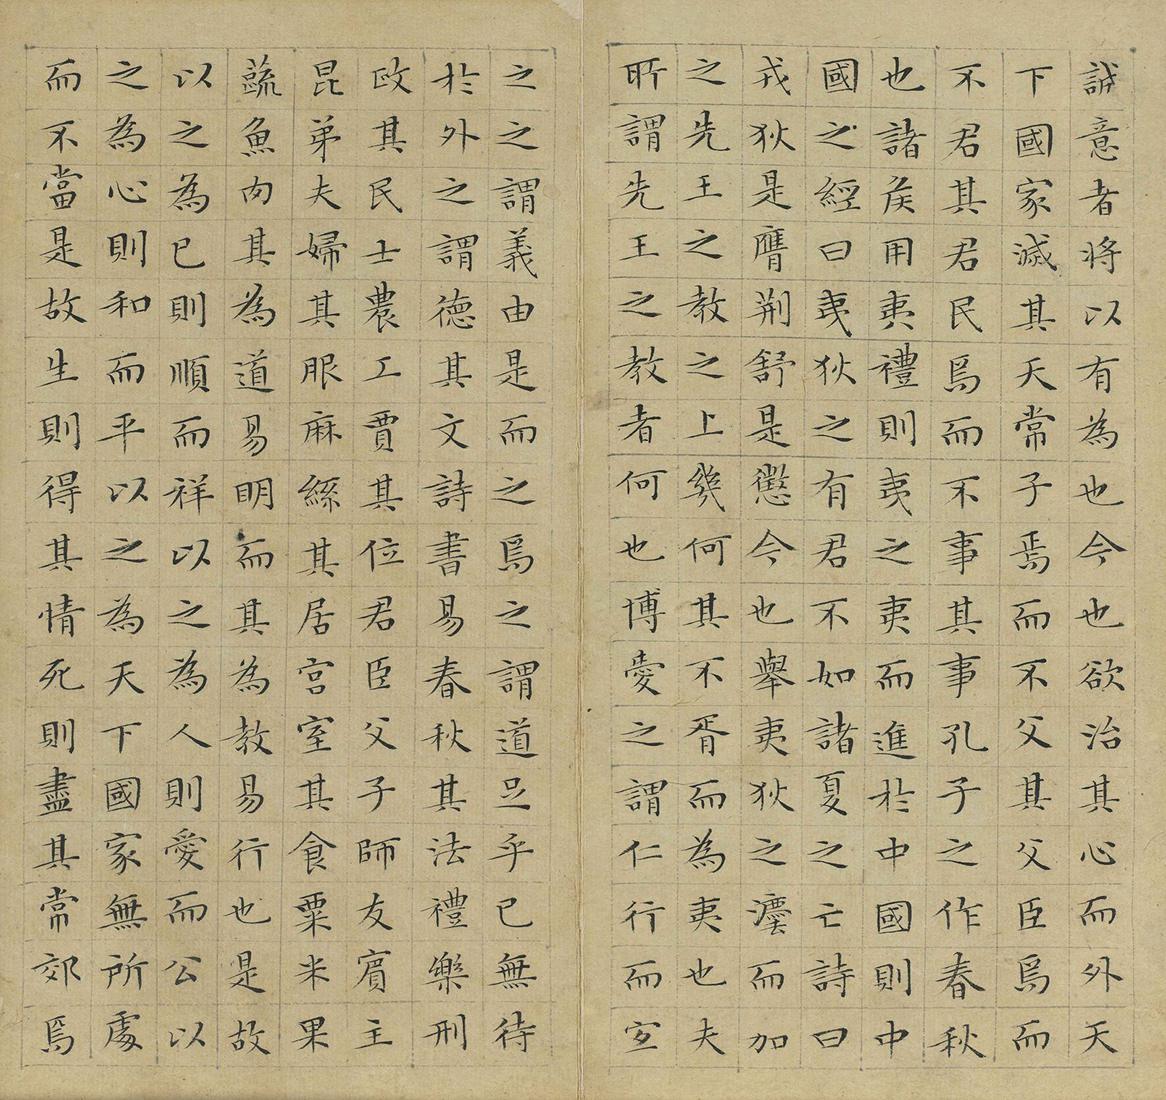 誠意者將以有為也今也欲治其心而外天
下國家滅其天常子焉而不父其父臣焉而
不君其君民焉而不事其事孔子之作春秋
也諸侯用夷禮則夷之夷而進於中國則中
國之經曰夷狄之有君不如諸夏之亡詩曰
戎狄是膺荊舒是懲今也舉夷狄之灋而加
之先王之教之上幾何其不胥而為夷也夫
所謂先王之教者何也博愛之謂仁行而宜
之之謂義由是而之焉之謂道足乎已無待
於外之謂德其文詩書易春秋其法禮樂刑
政其民士農工賈其位君臣父子師友賓主
昆弟夫婦其服麻絲其居宮室其食粟米果
蔬魚肉其為道易明而其為教易行也是故
以之為已則順而祥以之為人則愛而公以
之為心則和而平以之為天下國家無所處
而不當是故生則得其情死則盡其常郊焉